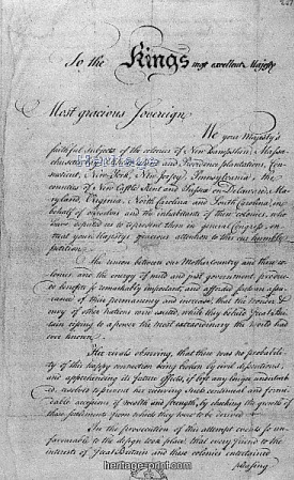 To the Kings most excellent Majesty
Most gracious Sovereign
We your Majesty's
faithful subjects of the colonies of New Hampshire, Massa-
chusetts and Providence plantations, Con-
necticut, New York, New Jersey, Pennsylvania, the
counties of New Castle Kent and Sussex on Delaware, Ma-
ryland, Virginia, North Carolina and South Carolina, in
behalf of ourselves and the inhabitants of these colonies, who
have deputed us to represent them in general Congress, en-
treat your Majesty's gracious attention to this our humble
petition.
The union between our Mother Country and these co-
lonies and the energy of mild and just government produc-
ed benefits so remarkably important, and afforded such an assu-
rance of their permanency and increase, that the wonder &
envy of other nations were excited, while they beheld Great Bri-
tain rising to a power the most extraordinary the world had
ever known.
Her rivals observing, that there was no probabili-
ty of this happy connection being broken by civil dissentions,
and apprehending its future effects, if left any longer undisturb-
ed, resolved to prevent her receiving such continual and formi-
dable accessions of wealth and strength, by checking the growth of
these settlements from which they were to be derived
In the prosecution of this attempt events so un-
favourable to the design took place, that every friend to the
interest of Great Britain and these colonies entertained
pleasing
heritage-print.com